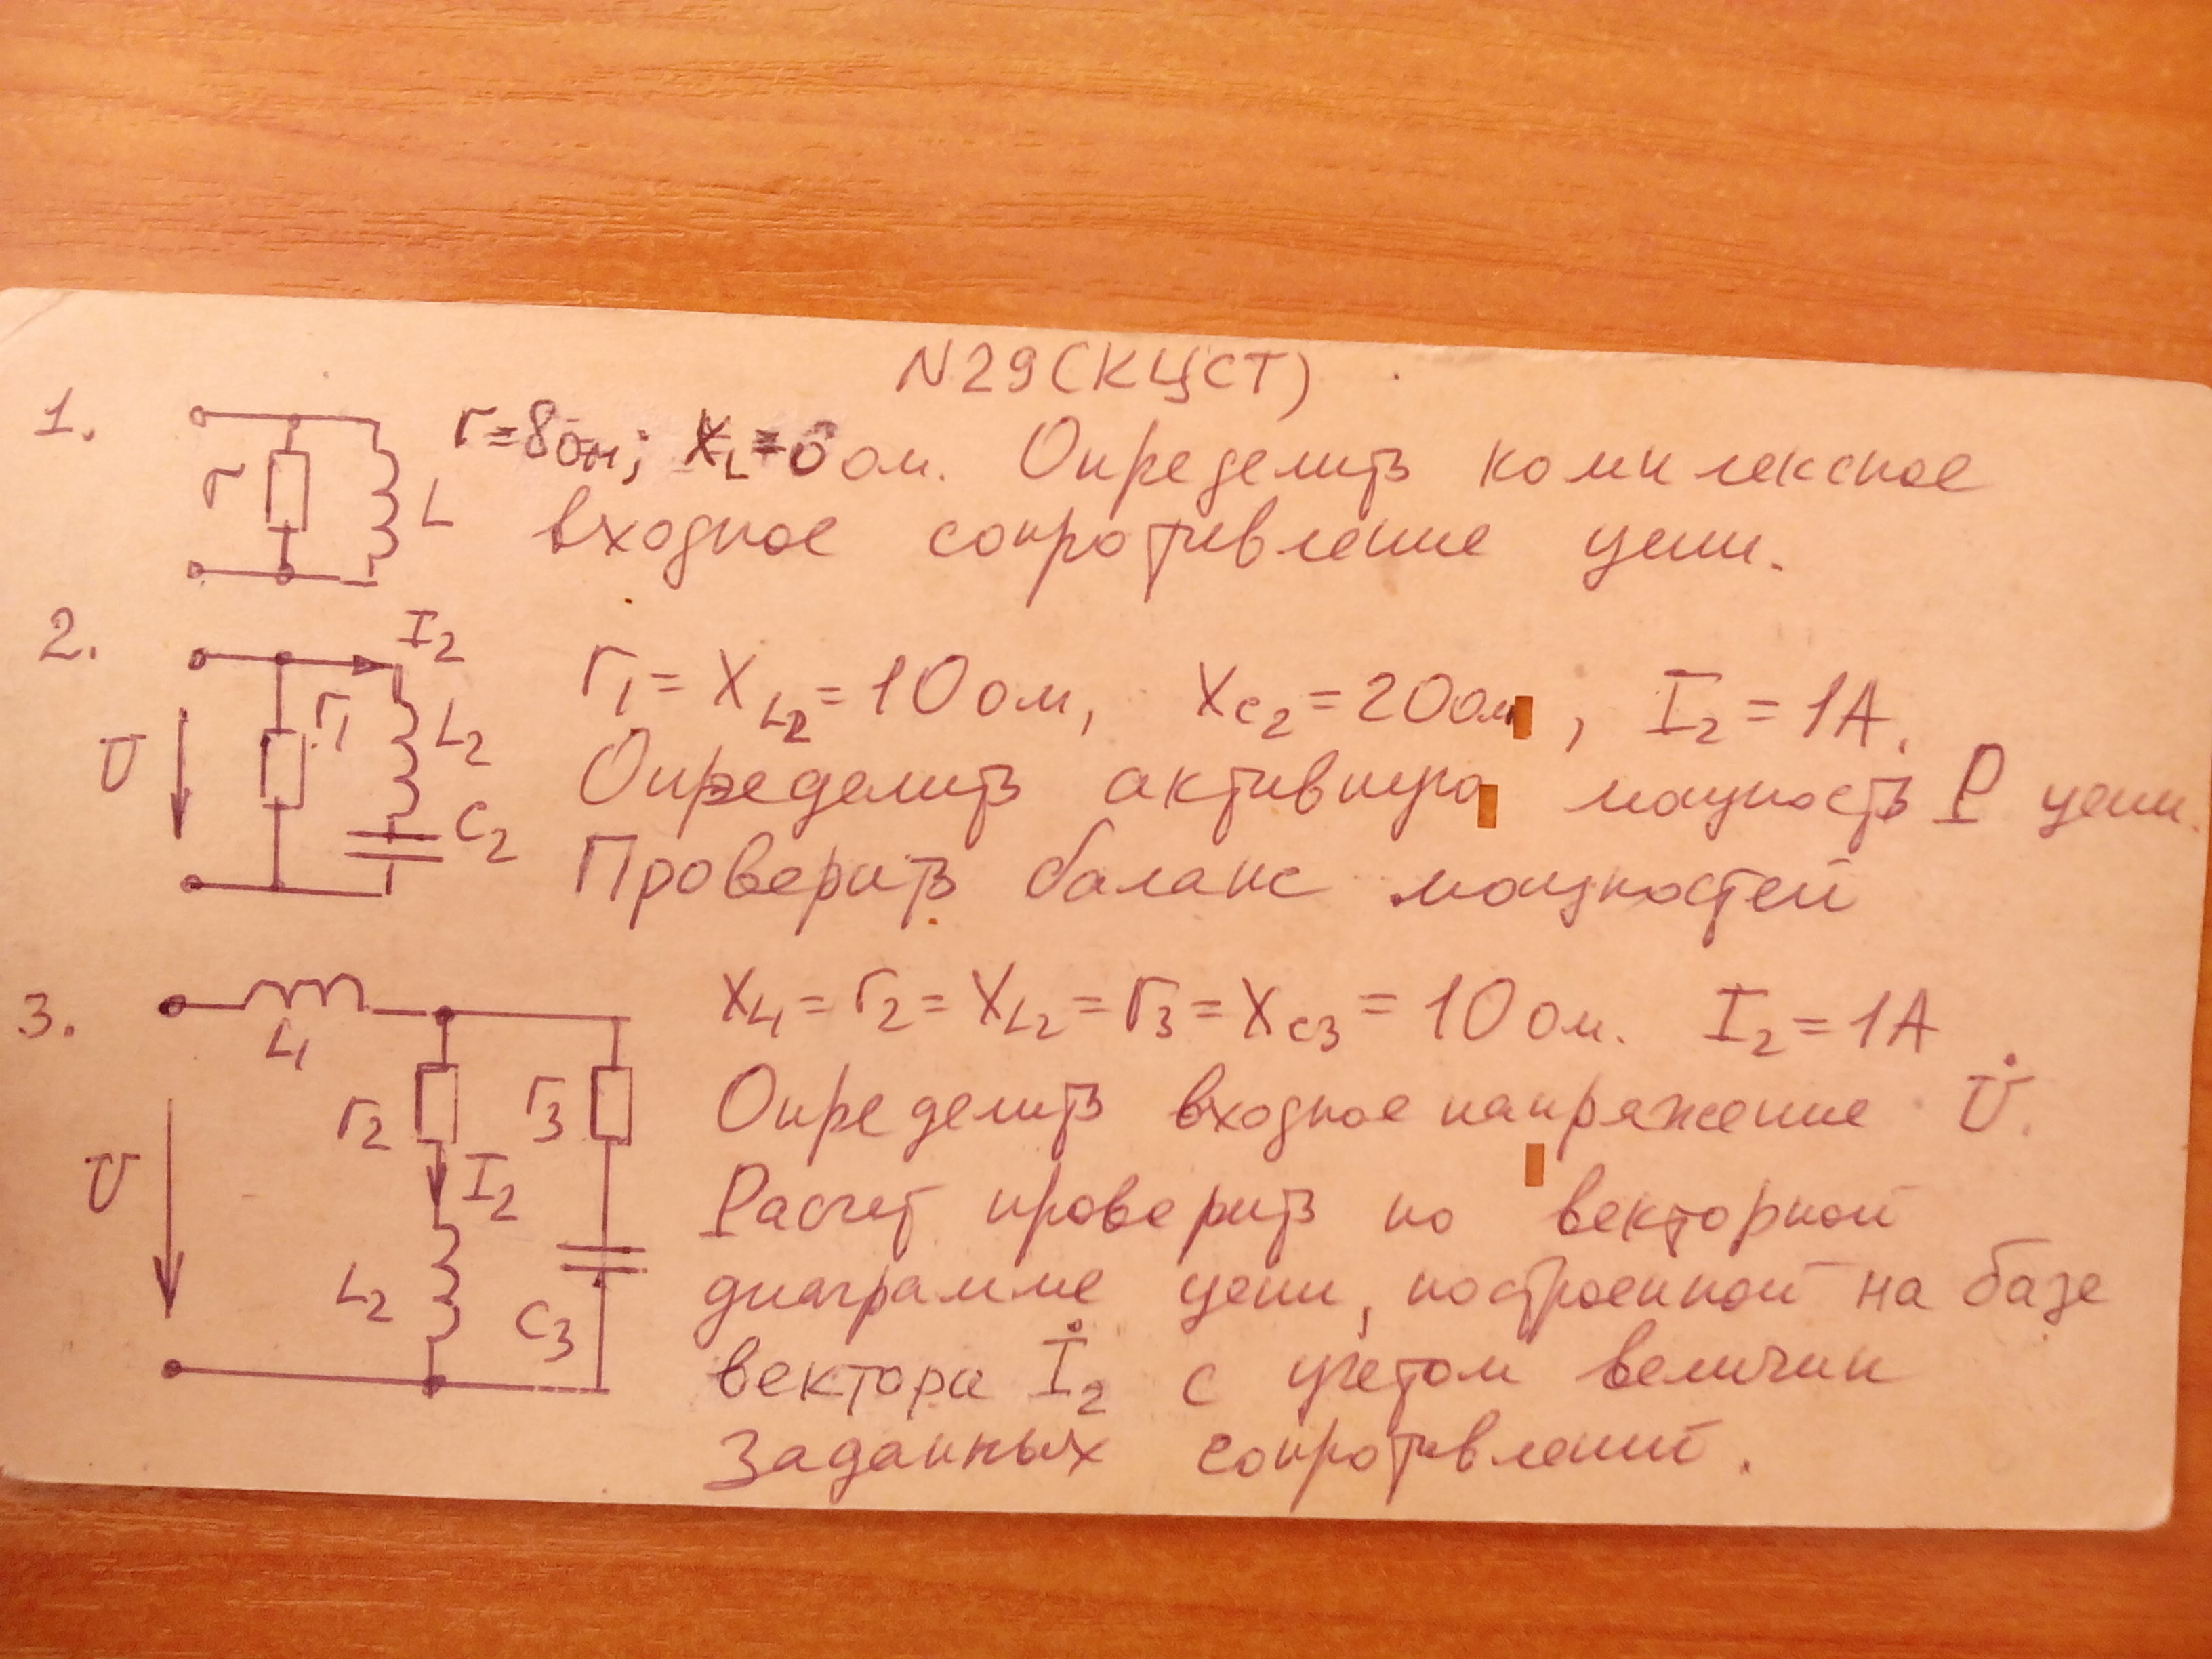 N29 (КЦСТ)
1. r L r=8 ом; XL= ом. Определить комплексное
входное сопротивление цепи.
2. U r1 I2 L2 C2 r1 = XL2 = 10 ом, Xc2 = 20 ом, I2 = 1А.
Определить активную мощность P цепи.
Проверить баланс мощностей
3. U L1 r2 I2 L2 r3 C3 XL1 = r2 = XL2 = r3 = Xc3 = 10 ом. I2 = 1А
Определить входное напряжение U̇.
Расчет проверить по векторной
диаграмме цепи, построенной на базе
вектора İ2 с учетом величин
заданных сопротивлений.